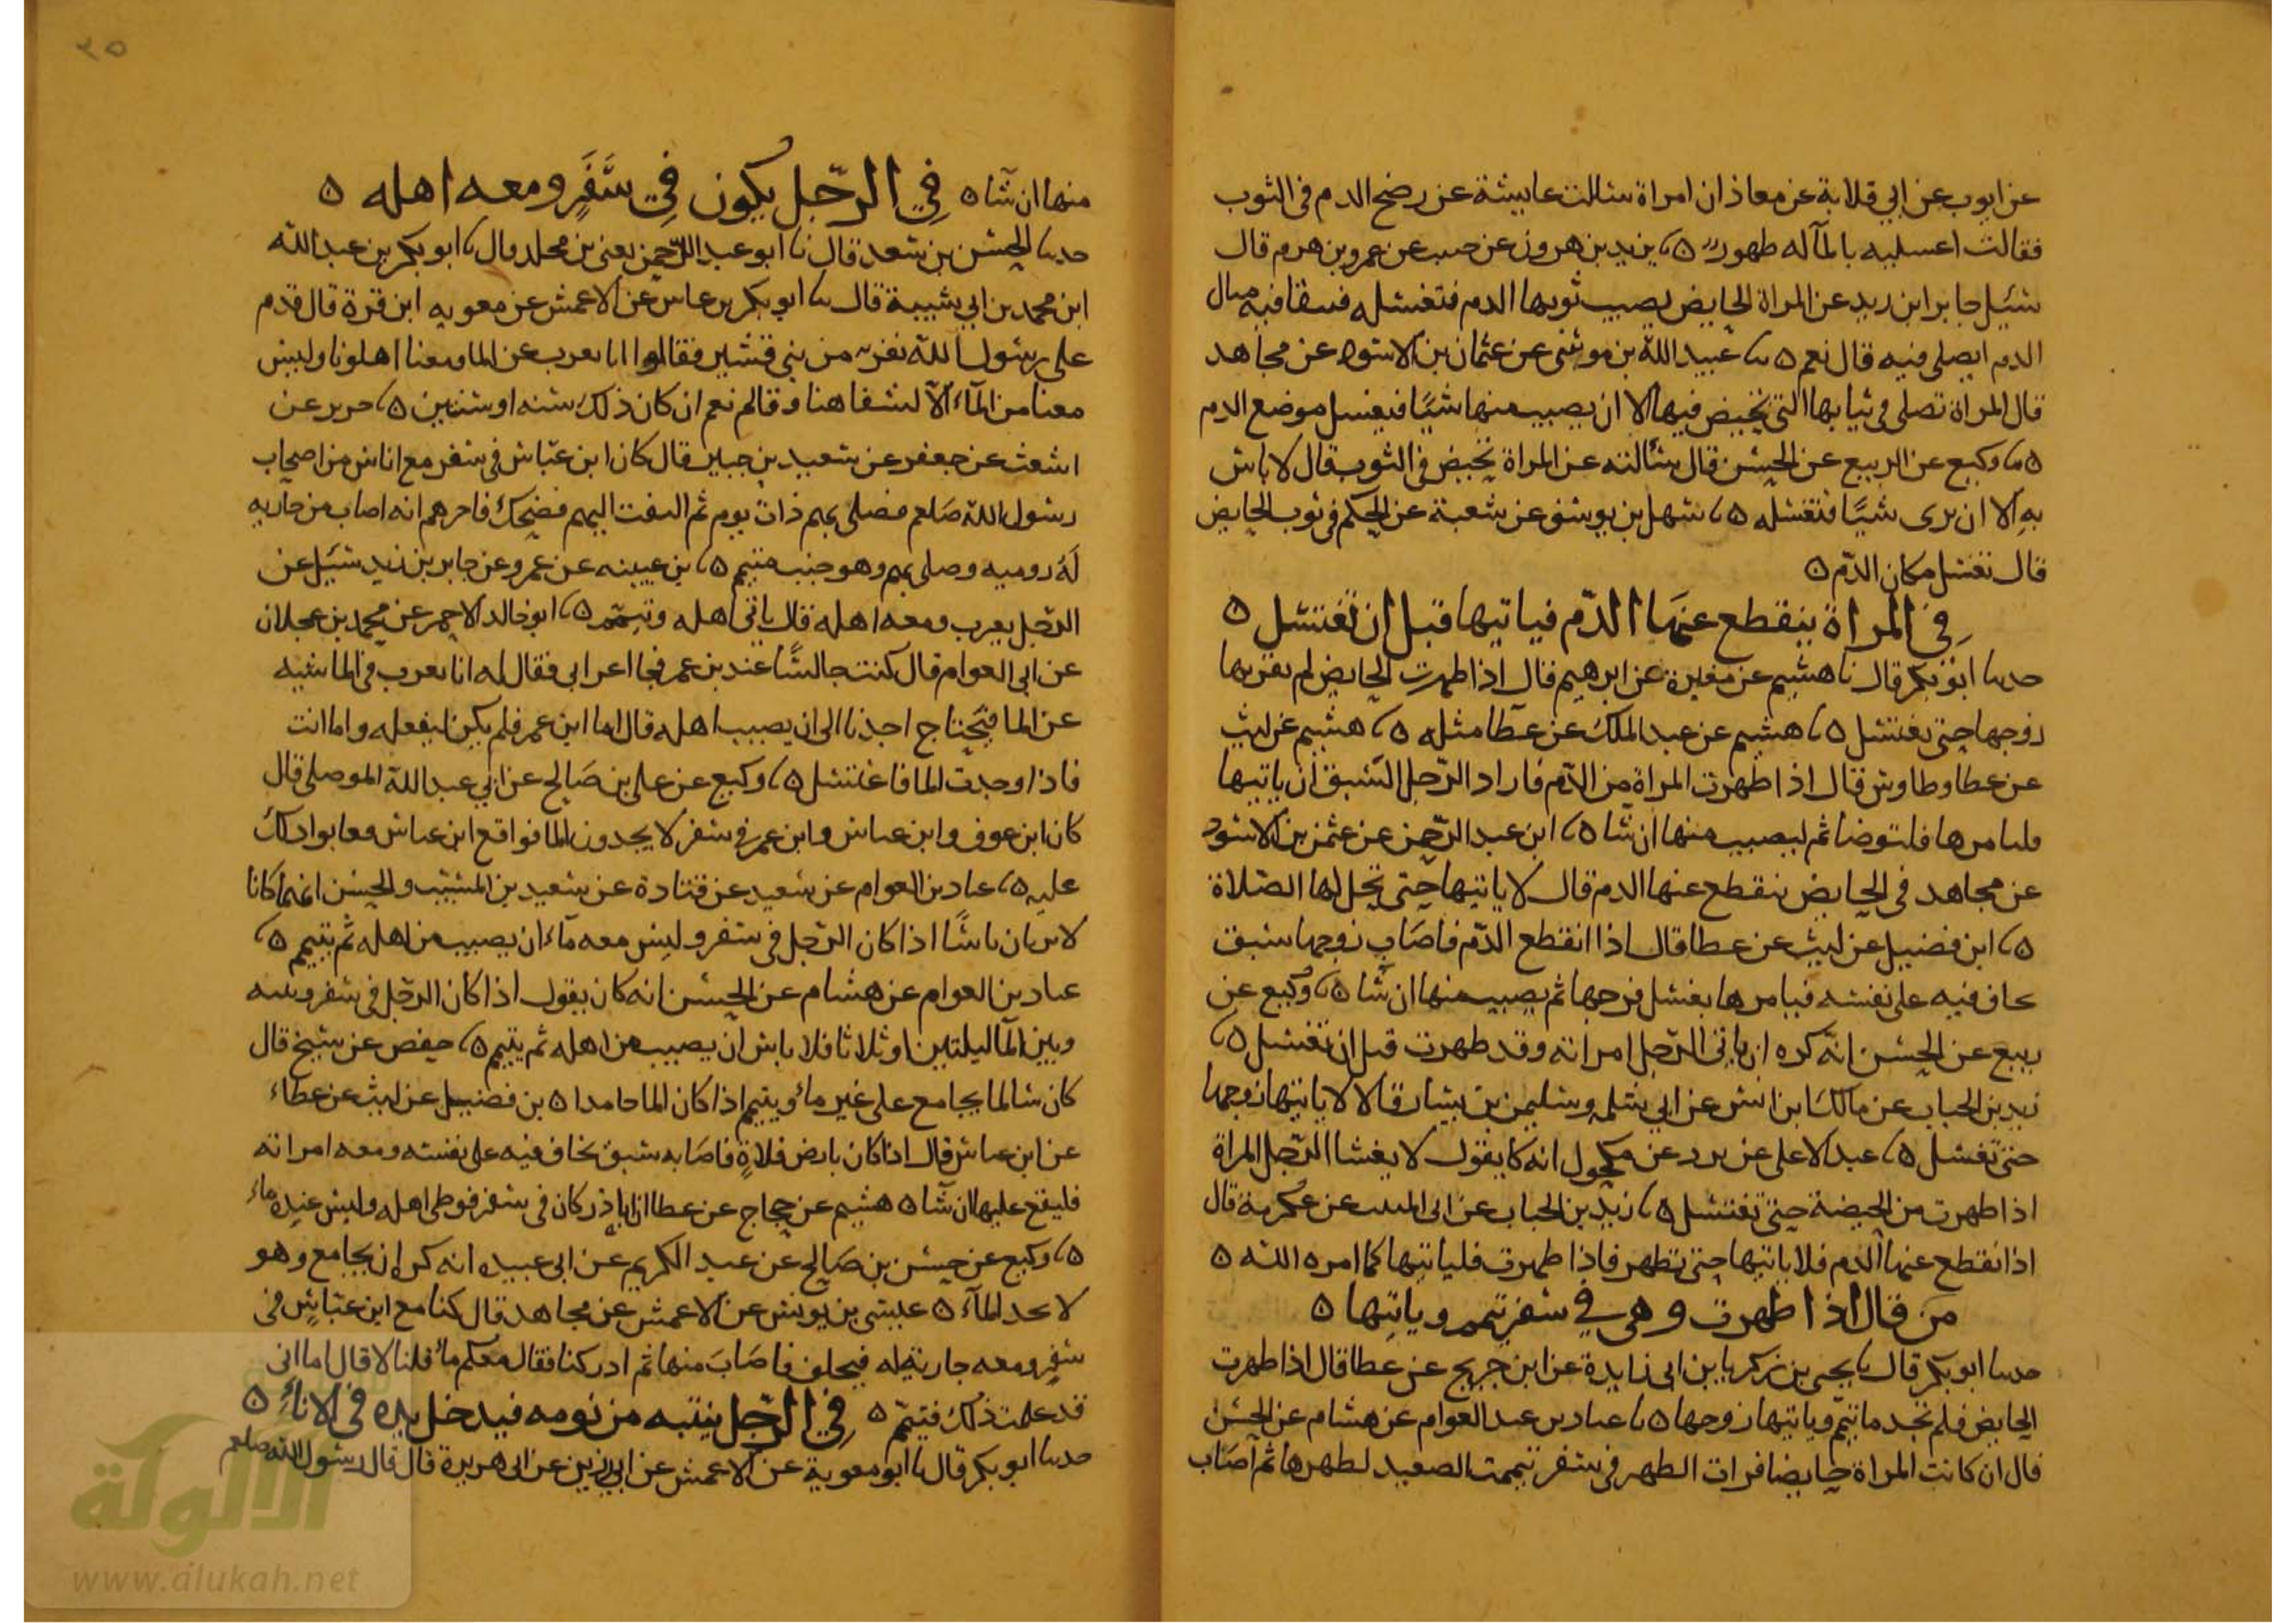 عن ايوب عن ابي قلابة عن معاذ ان امراة سالت عايشة عن رضح الدم في الثوب
فقالت اغسليه بالمآ له طهور ٥ نا يزيد بن هرون عن حبيب عن عمرو بن هرم قال
سئيل جابر ابن زيد عن المراة الحايض يصيب ثوبها الدم فتغسله فيبقا فيه مثال
الدم ايصلى فيه قال نعم ٥ نا عبيد الله بن موسى عن عثمان بن الاسود عن مجاهد
قال المراة تصلى في ثيابها التي تحيض فيها الا ان يصيب منها شيًا فيغسل موضع الدم
٥ نا وكيع عن الربيع عن الحسن قال سألته عن المراة تحيض في الثوب قال لا باس
به الا ان يرى شيًا فتغسله ٥ نا سهل بن يوسف عن شعبة عن الحكم في ثوب الحايض
قال تغسل مكان الدّم ٥
في المراة ينقطع عنها الدّم فياتيها قبل ان تغتسل ٥
حدثنا ابو بكر قال نا هشيم عن مغيرة عن ابرهيم قال اذا طهرت الحايض لم يقربها
زوجها حتى تغتسل ٥ نا هشيم عن عبد الملك عن عطا مثله ٥ نا هشيم عن ليث
عن عطا وطاوس قال اذا طهرت المراة من الدّم فاراد الرّجل الشبق ان ياتيها
فليامرها فلتوضا ثم ليصيب منها ان شا ٥ نا ابن عبد الرّحمن عن عثمن بن الاسود
عن مجاهد في الحايض ينقطع عنها الدم قال لا ياتيها حتى تحل لها الصّلاة
٥ نا ابن فضيل عن ليث عن عطا قال اذا انقطع الدّم فاصاب زوجها شبق
يخاف فيه على نفسه فيامرها بغسل فرجها ثم يصيب منها ان شا ٥ نا وكيع عن
ربيع عن الحسن انّه كره ان ياتي الرّجل امراته وقد طهرت قبل ان تغتسل ٥ نا
زيد بن الحباب عن مالك ابن انس عن ابي سلمه وسليمن بن يسار قالا لا ياتيها زوجها
حتى تغسل ٥ نا عبد الاعلى عن برد عن مكحول انه كا يقول لا يغشا الرّجل المراة
اذا طهرت من الحيضة حتى تغتسل ٥ نا زيد بن الحباب عن ابى المنيب عن عكرمة قال
اذا نقطع عنها الدم فلا ياتيها حتى تطهر فاذا طهرت فلياتيها كما امره الله ٥
من قال اذا طهرت وهى في سفر تيمم وياتيها ٥
حدثنا ابو بكر قال نا يحيى بن زكريا بن ابى زايدة عن ابن جريج عن عطا قال اذا طهرت
الحايض فلم تجد ما تيمّم وياتيها زوجها ٥ نا عباد بن عبد العوام عن هشام عن الحسن
قال ان كانت المراة حايضا فرات الطهر في سفر تيممت الصعيد لطهرها ثم اصاب
٣٥
منها ان شآ ٥ في الرّجل يكون في سفر ومعه اهله ٥
حدثنا الحسن بن سعد قال نا ابو عبد الرّحمن يعنى بن مخلد قال نا ابو بكر بن عبد الله
ابن محمد بن ابي شيبة قال نا ابو بكر بن عياش عن الاعمش عن معويه ابن قرة قال قدم
على رسول الله نفر من بني قشير فقالوا انا نعرب عن الما ومعنا اهلونا وليس
معنا من المآء الا لشفاهنا وقالم نعم ان كان ذلك سنه او سنتين ٥ نا جرير عن
اشعث عن جعفر عن سعيد بن جبير قال كان ابن عبّاس في سفر مع اناس من اصحاب
رسول الله صلعم فصلى بهم ذات يوم ثم التفت اليهم فضحك فاخرهم انه اصاب من جاريه
لَهُ روميه وصلى بهم وهو جنب متيمم ٥ نا بن عيينه عن عمرو عن جابر بن زيد سئيل عن
الرّجل يعرب ومعه اهله قال ياتى اهله وتيمّم ٥ نا ابو خالد الاحمر عن محمد بن عجلان
عن ابى العوام قال كنت جالسًا عند بن عمر فجا اعرابى فقال له انا نعرب في الماشيه
عن الما فيحتاج احدنا الى ان يصيب اهله قال اما ابن عمر فلم يكن ليفعله واما انت
فاذا وجدت الما فاغتسل ٥ نا وكيع عن على بن صالح عن ابي عبد الله الموصلى قال
كان ابن عوف وابن عباس وابن عمر في سفر لا يجدون الما فواقع ابن عباس فعابوا ذلك
عليه ٥ نا عباد بن العوام عن سعيد عن قتادة عن سعيد بن المسيّب والحسن انهما كانا
لا يريان باسًا اذا كان الرّجل في سفر وليس معه مآء ان يصيب من اهله ثم يتيمم ٥ نا
عباد بن العوام عن هشام عن الحسن انه كان يقول اذا كان الرّجل في سفر وبينه
وبين المآ ليلتين او ثلاثا فلا باس ان يصيب من اهله ثم يتيمم ٥ نا حفص عن شيخ قال
كان سالما يجامع على غير ماء ويتيمم اذا كان الما جامدا ٥ بن فضيل عن ليث عن عطاء
عن ابن عباس قال اذا كان بارض فلاةٍ فاصابه شبق يخاف فيه على نفسه ومعه امراته
فليقع عليها ان شآ ٥ هشيم عن حجاج عن عطا ان اباذر كان في سفر فوطى اهله وليس عنده ماء
٥ نا وكيع عن حسن بن صالح عن عبد الكريم عن ابى عبيده انه كره ان يجامع وهو
لا يجد المآء ٥ عيسى بن يونس عن الاعمش عن مجاهد قال كنا مع ابن عبّاس في
سفر ومعه جارية له فتخلف فاصاب منها ثم ادركنا فقال معكم ماء قلنا لا قال اما انى
قد علمت ذلك فتيمّم ٥ في الرّجل ينتبه من نومه فيدخل يده في الاناء ٥
حدثنا ابو بكر قال نا ابو معوية عن الاعمش عن ابى رزين عن ابى هريرة قال قال رسول الله صلعم
الألوكة
www.alukah.net